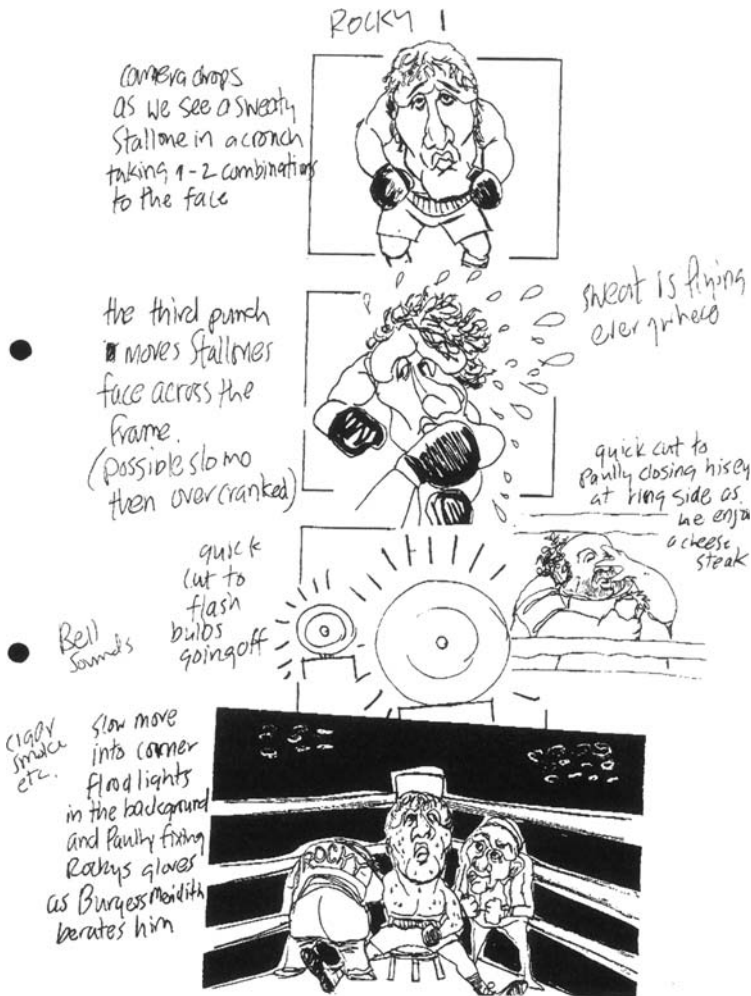 ROCKY 1
camera drops
as we see a sweaty
Stallone in a cronch
taking 1-2 combinations
to the face
the third punch
moves Stallones
face across the
frame.
(possible slomo
then overcranked)
sweat is flying
everywhere
quick cut to
Paully closing his ey
at ring side as
he enjo
a cheese
steak
quick
cut to
flash
bulbs
going off
Bell
Sounds
cigar
smoke
etc.
slow move
into corner
flood lights
in the background
and Paully fixing
Rockys gloves
as Burgess Meridith
berates him
ROCKY